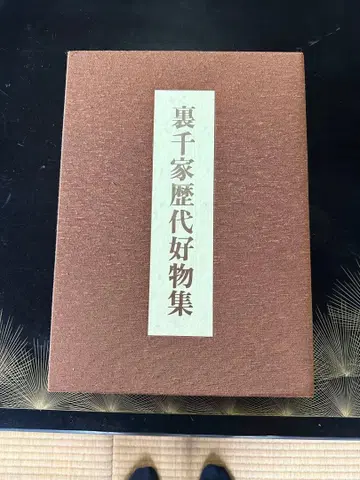 裏千家歴代好物集